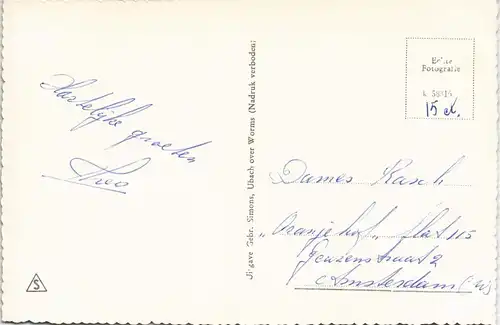 Hartelijke groeten
Theo
Ji·gave Gebr. Simons, Ubach over Worms (Nadruk verboden)
Echte
Fotografie
15 ct.
Dames Rasch
„Oranjehof" flat 115
Geuzenstraat 2
Amsterdam (W)
S